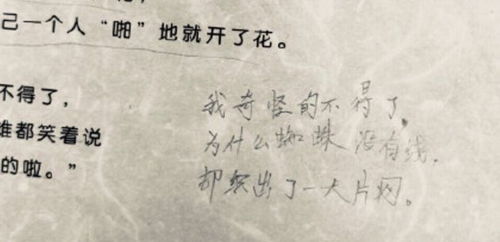 己一个人“啪”地就开了花。
不得了，
谁都笑着说
的啦。”
我奇怪的不得了
为什么蜘蛛没有线，
却织出了一大片网。